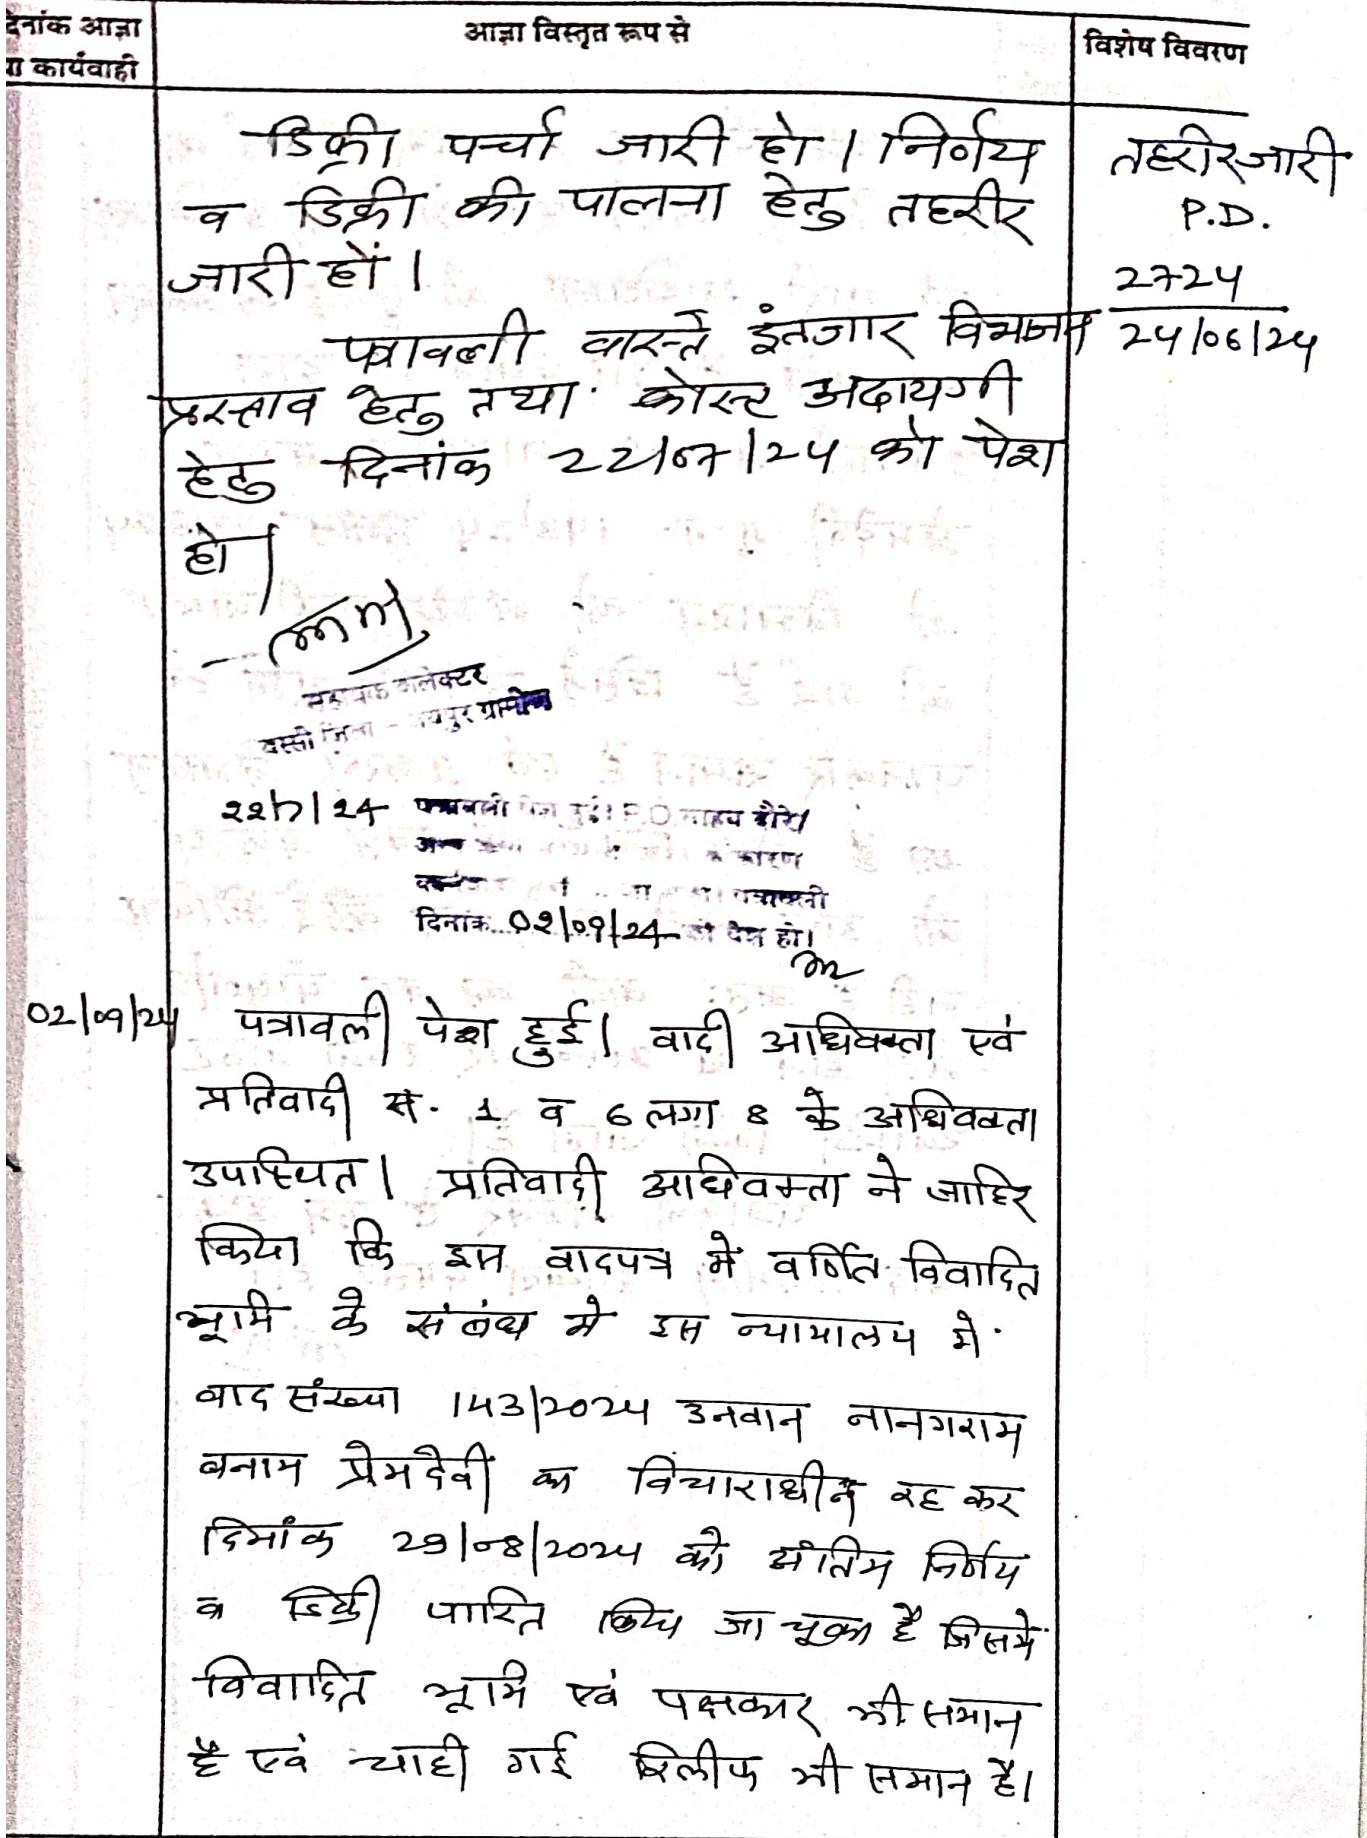 दिनांक आज्ञा
या कार्यवाही
आज्ञा विस्तृत रूप से
विशेष विवरण
डिक्री पर्चा जारी हो। निर्णय
व डिक्री की पालना हेतु तहरीर
जारी हों।
तहरीर जारी
P.D.
2724
24/06/24
पत्रावली वास्ते इंतजार विभाजन
प्रस्ताव हेतु तथा कोस्ट अदायगी
हेतु दिनांक 22/07/24 को पेश
हो।
सहायक कलेक्टर
बस्सी जिला - जयपुर ग्रामीण
22/7/24 पत्रावली पेश हुई। P.O. साहब दौरे
अन्य के कारण
पत्रावली
दिनांक 02/09/24 को पेश हो।
02/09/24 पत्रावली पेश हुई। वादी अधिवक्ता एवं
प्रतिवादी सं. 1 व 6 लगा 8 के अधिवक्ता
उपस्थित। प्रतिवादी अधिवक्ता ने जाहिर
किया कि इस वादपत्र में वर्णित विवादित
भूमि के संबंध मे इस न्यायालय मे
वाद संख्या 143/2024 उनवान नानगराम
बनाम प्रेमदेवी का विचाराधीन रह कर
दिनांक 29/08/2024 को अंतिम निर्णय
व डिक्री पारित किया जा चूका है जिसमें
विवादित भूमि एवं पक्षकार भी समान
है एवं चाही गई रिलीफ भी समान है।